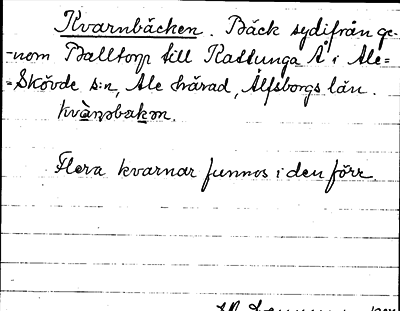 Kvarnbäcken. Bäck sydifrån ge-
-nom Balltorp till Kattunga Å i Ale-
-Skövde s:n, Ale härad, Älfsborgs län.
Flera kvarnar funnos i den förr.